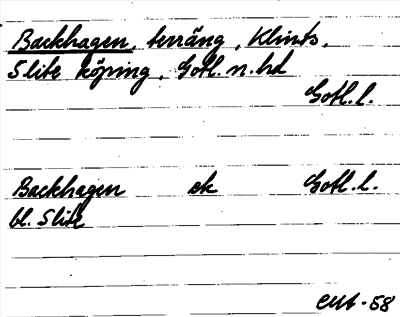 Backhagen, terräng, Klints,
Slite köping, Gotl. n. hd
Gotl. l.
Backhagen ek Gotl. l.
bl. Slite